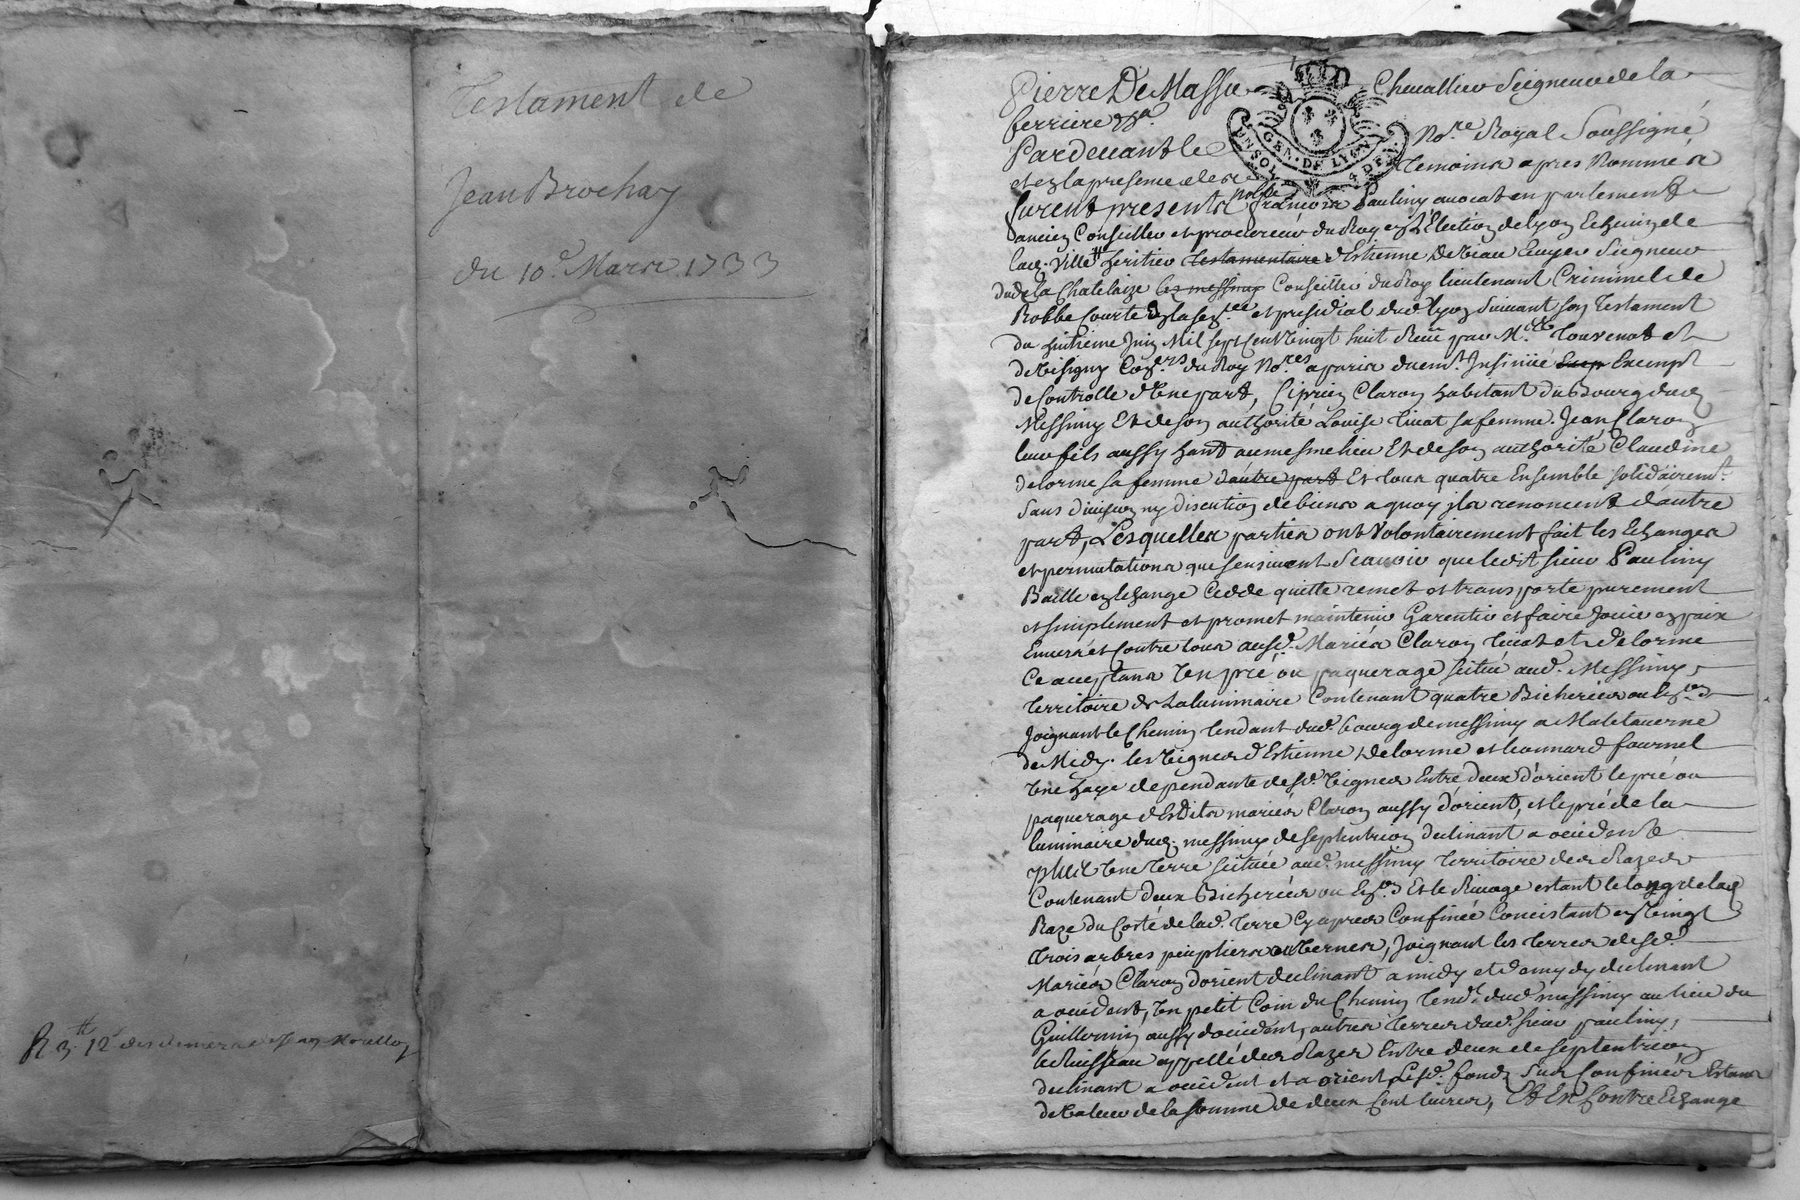 Testament de
Jean Brochay
du 10e. Mars 1733
R 3tt 12s des demeranc Jean
Pierre De Massu Chevallier Seigneur de la
ferriere &a.
GEN. DE LYON
Pardevant le Nore. Royal Soussigné
et en la presence des Temoins apres Nommés
furent presents noble françois Pauliny avocat en parlement
ancien Conseiller et procureur du Roy en L'Election de lyon Echevin de
lad. Ville heritier testamentaire d'Estienne De Riau Ecuyer Seigneur
dud la Chatelaize Conseiller du Roy lieutenant Criminel de
Robbe Courte En la senee. et presidial dud lyon Suivant son Testament
du huitieme Juin Mil sept Cent Vingt huit Receu par Me. Touvenot et
de Visigny Conrs. du Roy Nores a paris duemt. Insinué Exempt
de Controlle d'Une part, Ciprien Claron habitant du Bourg dud
Messimy Et de son authorité Louise Vinot sa femme. Jean Claron
leur fils aussy hant au mesme lieu Et de son authorité Claudine
delorme sa femme d'autre part Et tous quatre Ensemble solidairemt.
Sans division ny discution de biens a quoy ils renoncent d'autre
part, Lesquelles parties ont Volontairement fait les Echanges
et permutations que sensuivent Scavoir que ledit sieur Pauliny
Baille en Echange Cedde quitte remet et transporte purement
et simplement et promet maintenir Garentir et faire Jouir en paix
Envers et Contre tous ausd. Mariés Claron Vinot et delorme
Ce acceptans Un pré ou paquerage scitué aud. Messimy,
territoire de La luminaire Contenant quatre Bicherées ou Enon
Joignant le Chemin tendant dud. bourg de messimy a Maletaverne
de Midy. les Vignes d'Estienne delorme et leonnard fournel
Une haye dependante desd. Vignes Entre deux d'orient le pré ou
paquerage d'Esdits mariés Claron aussy d'orient, et le pré de la
luminaire dud. messimy de septentrion declinant a occident
plus Une terre scituée aud. messimy territoire des Razes
Contenant deux Bicherées ou Enon Et le Rivage estant le long de lad
Raze du Costé de lad. terre Cy apres Confinée Concistant en Vingt
trois arbres peupliers ou Vernes, Joignant les terres desd.
Mariés Claron d'orient declinant a midy et de midy declinant
a occident, Un petit Coin du Chemin tendt. dud messimy au lieu du
Guillermin aussy d'occident, autres terres dud. sieur pauliny,
le Ruisseau appellé des Razes Entre deux de septentrion
declinant a occident et a orient Lesd. fonds Sus Confinés Estans
de Valeur de la somme de deux Cent livres, Et En Contre Echange